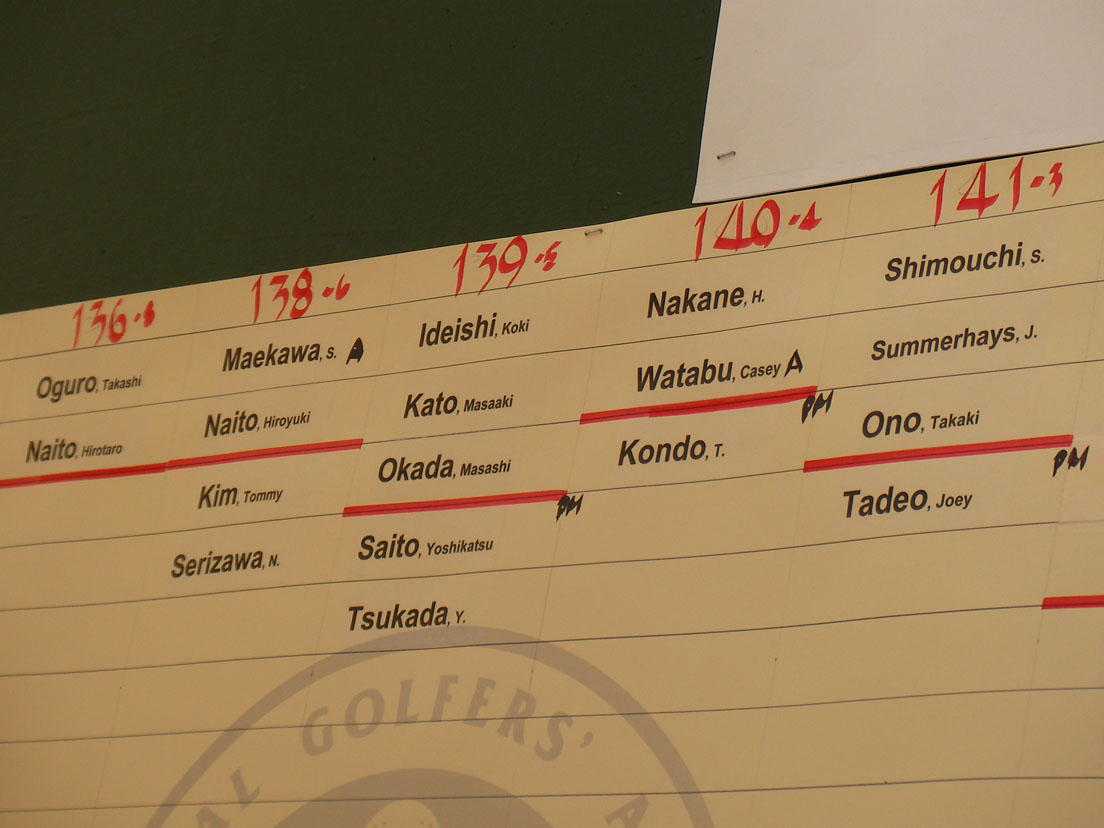 136-8
Oguro, Takashi
Naito, Hirotaro
138-6
Maekawa, S. A
Naito, Hiroyuki
Kim, Tommy
Serizawa, N.
139-5
Ideishi, Koki
Kato, Masaaki
Okada, Masashi
PM
Saito, Yoshikatsu
Tsukada, Y.
140-4
Nakane, H.
Watabu, Casey A
PM
Kondo, T.
141-3
Shimouchi, S.
Summerhays, J.
Ono, Takaki
PM
Tadeo, Joey
AL GOLFERS' A